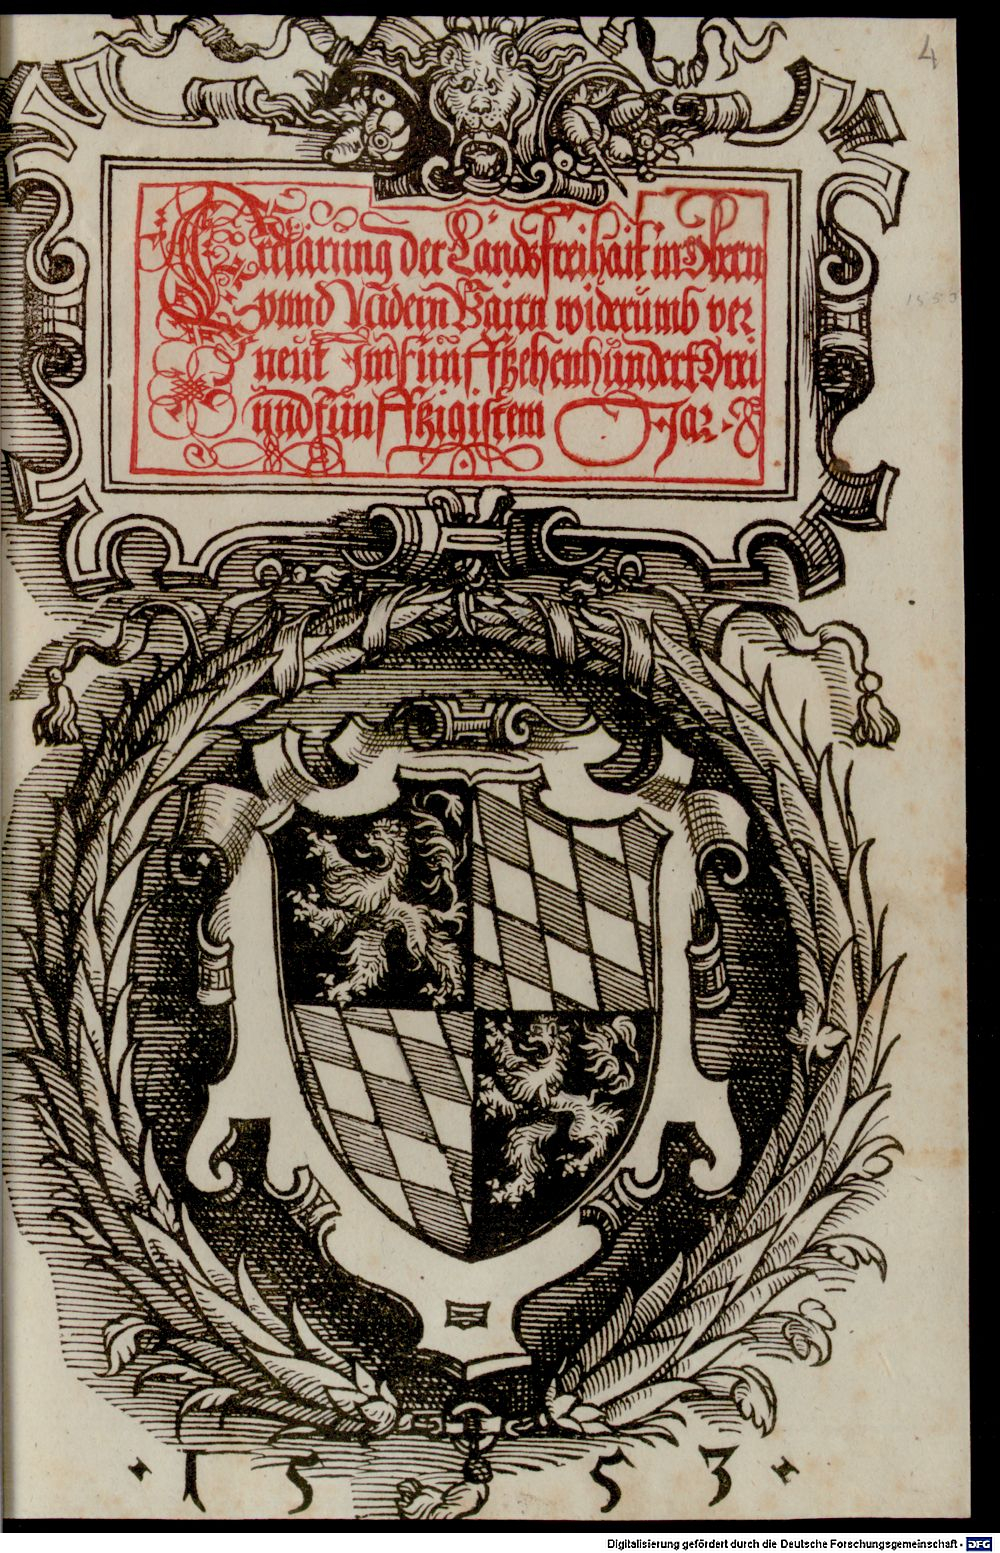 4
Erclärung der Landsfreihait in Obern
vnnd Nidern Bairn widerumb ver
neut Im Fünffzehenhundert Drei
undfünfftzigistem Jar.
1553
1 5 5 3
Digitalisierung gefördert durch die Deutsche Forschungsgemeinschaft - DFG